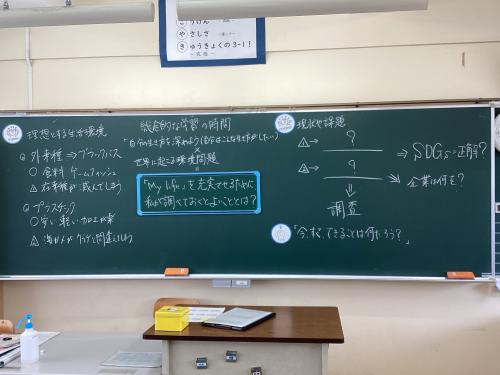 こうげん
や やさしさ
き きゅうきょくの3-1!
総合的な学習の時間
理想とする生活環境
◎外来種⇒ブラックバス
○食料 ゲームフィッシュ
△在来種が減ってしまう
◎プラスチック
○安い 軽い 加工が楽
△海ガメがクラゲと間違えてしまう
「自分の生き方を深めよう(自分はこんな生き方がしたい)」
×
世界に起こる環境問題
「My life」を充実させるために
私が調べておくとよいこととは?
現状や課題
△→ ?
△→ ?
⇓
調査
⇒ SDGsで正解?
⇒ 企業は何を?
「今、すぐ、できることは何だろう?」